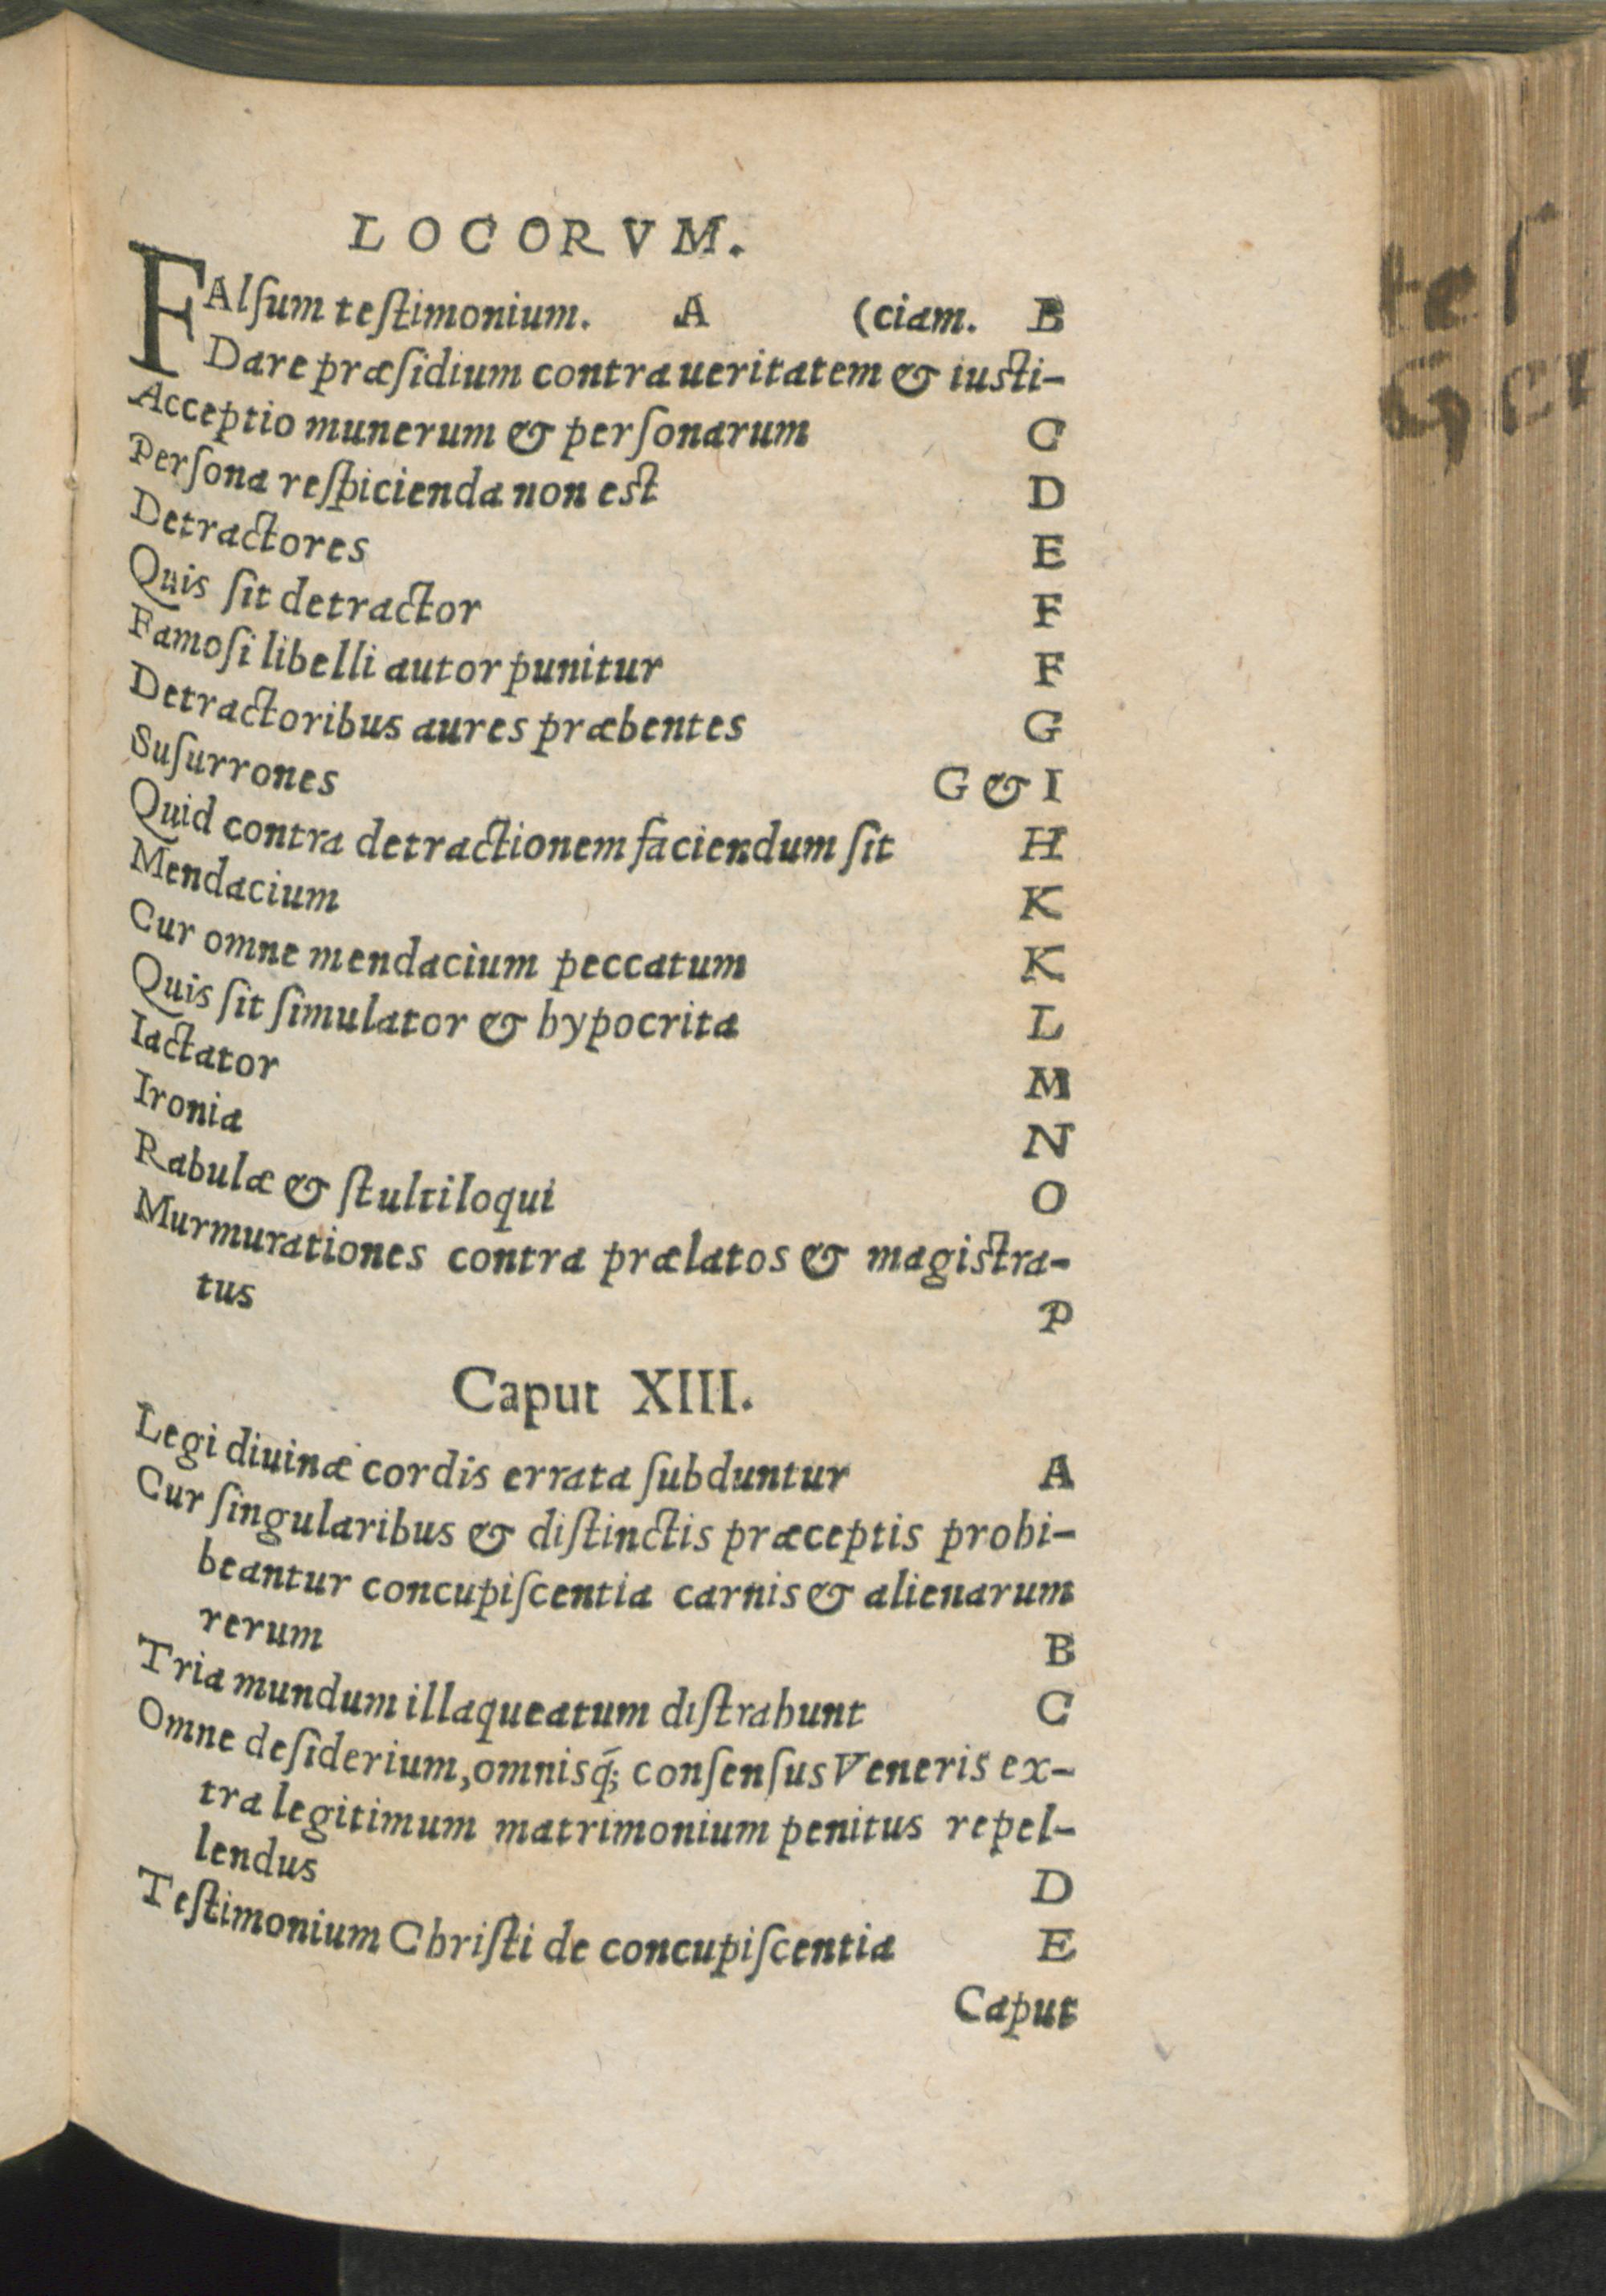 LOCORVM.
FAlſum teſtimonium. A (ciam. B
Dare præſidium contra ueritatem & iuſti-
Acceptio munerum & perſonarum C
Perſona reſpicienda non eſt D
Detractores E
Quis ſit detractor F
Famoſi libelli autor punitur F
Detractoribus aures præbentes G
Suſurrones G & I
Quid contra detractionem faciendum ſit H
Mendacium K
Cur omne mendacium peccatum K
Quis ſit ſimulator & hypocrita L
Iactator M
Ironia N
Rabulæ & ſtultiloqui O
Murmurationes contra prælatos & magiſtra-
tus P
Caput XIII.
Legi diuinæ cordis errata ſubduntur A
Cur ſingularibus & diſtinctis præceptis prohi-
beantur concupiſcentia carnis & alienarum
rerum B
Tria mundum illaqueatum diſtrahunt C
Omne deſiderium, omnisq́; conſenſus Veneris ex-
tra legitimum matrimonium penitus repel-
lendus D
Teſtimonium Chriſti de concupiſcentia E
Caput